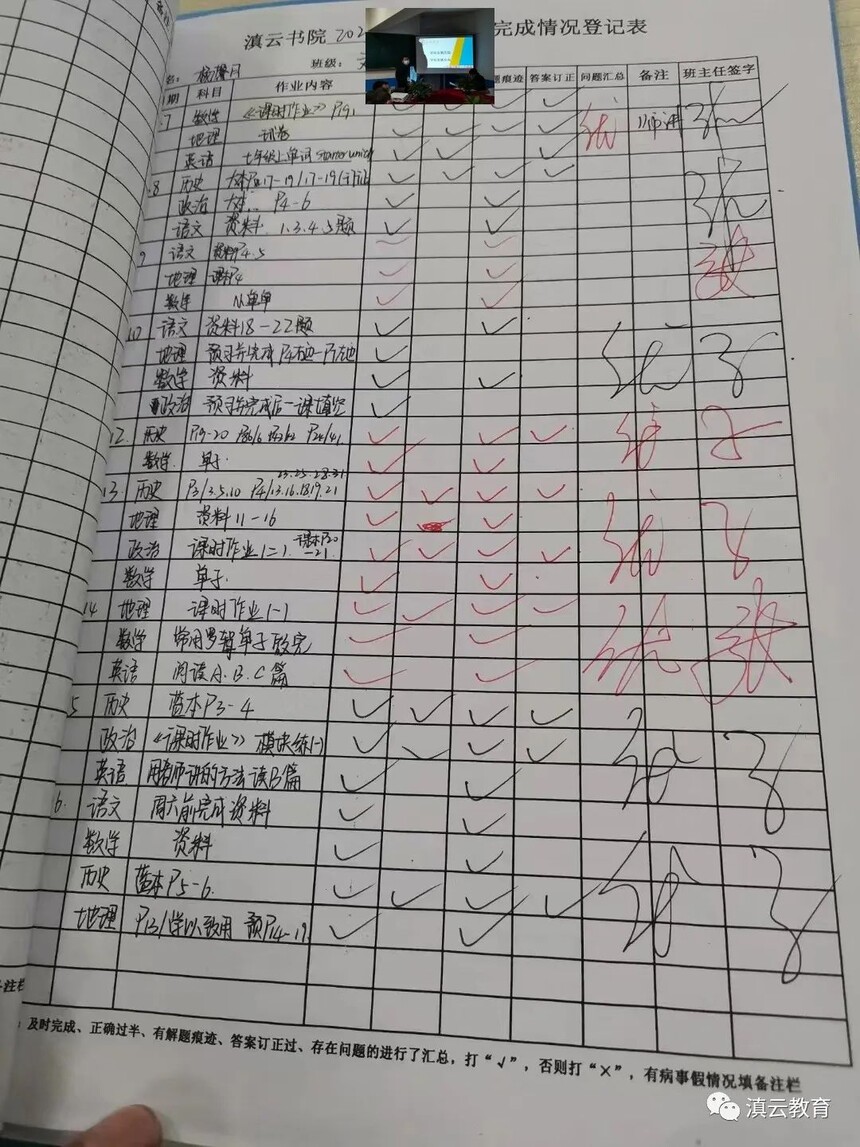 滇云书院 202 完成情况登记表
名： 班级：
期 科目 作业内容 题痕迹 答案订正 问题汇总 备注 班主任签字
7 数学 《课时作业》 P91
地理 试卷
英语 七年级上单词 starter unit
8 历史
政治 大本 P4-6
语文 资料 1.3.4.5题
9 语文 资料P4.5
地理
数学
10 语文 资料18-22题
地理 预习并完成 P4右边-P7左边
数学 资料
政治 预习并完成后一课填空
12 历史 P19-20
数学 单子
13 历史 P3/3.5.10 P4/13.16.18.19.21 23.25.28.31
地理 资料11-16
政治 课时作业1=1 课本P20-21
数学 单子
14 地理 课时作业1-1
数学 常用逻辑单子改完
英语 阅读A.B.C篇
5 历史 蓝本P3-4
政治 《课时作业》 模块练1-1
英语 用老师讲的方法读B篇
6. 语文 周六前完成资料
数学 资料
历史 蓝本P5-6
地理 P13/学以致用 预P14-19
：及时完成、正确过半、有解题痕迹、答案订正过、存在问题的进行了汇总，打“√”，否则打“×”，有病事假情况填备注栏
备注栏
滇云教育